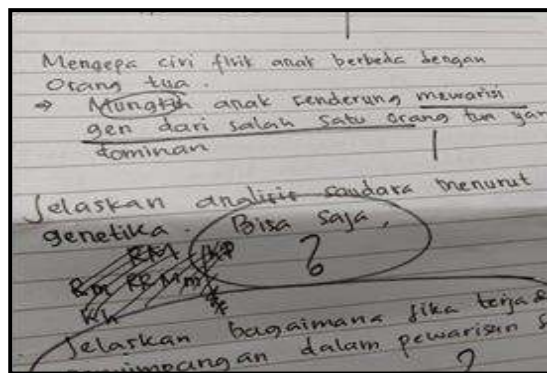 Mengepa ciri fisik anak berbeda dengan
orang tua.
→ Mungkin anak cenderung mewarisi
gen dari salah satu orang tua yan
dominan
Jelaskan analisis saudara menurut
genetika. Bisa saja,
?
Jelaskan bagaimana jika terjad
dalam pewarisan s
?